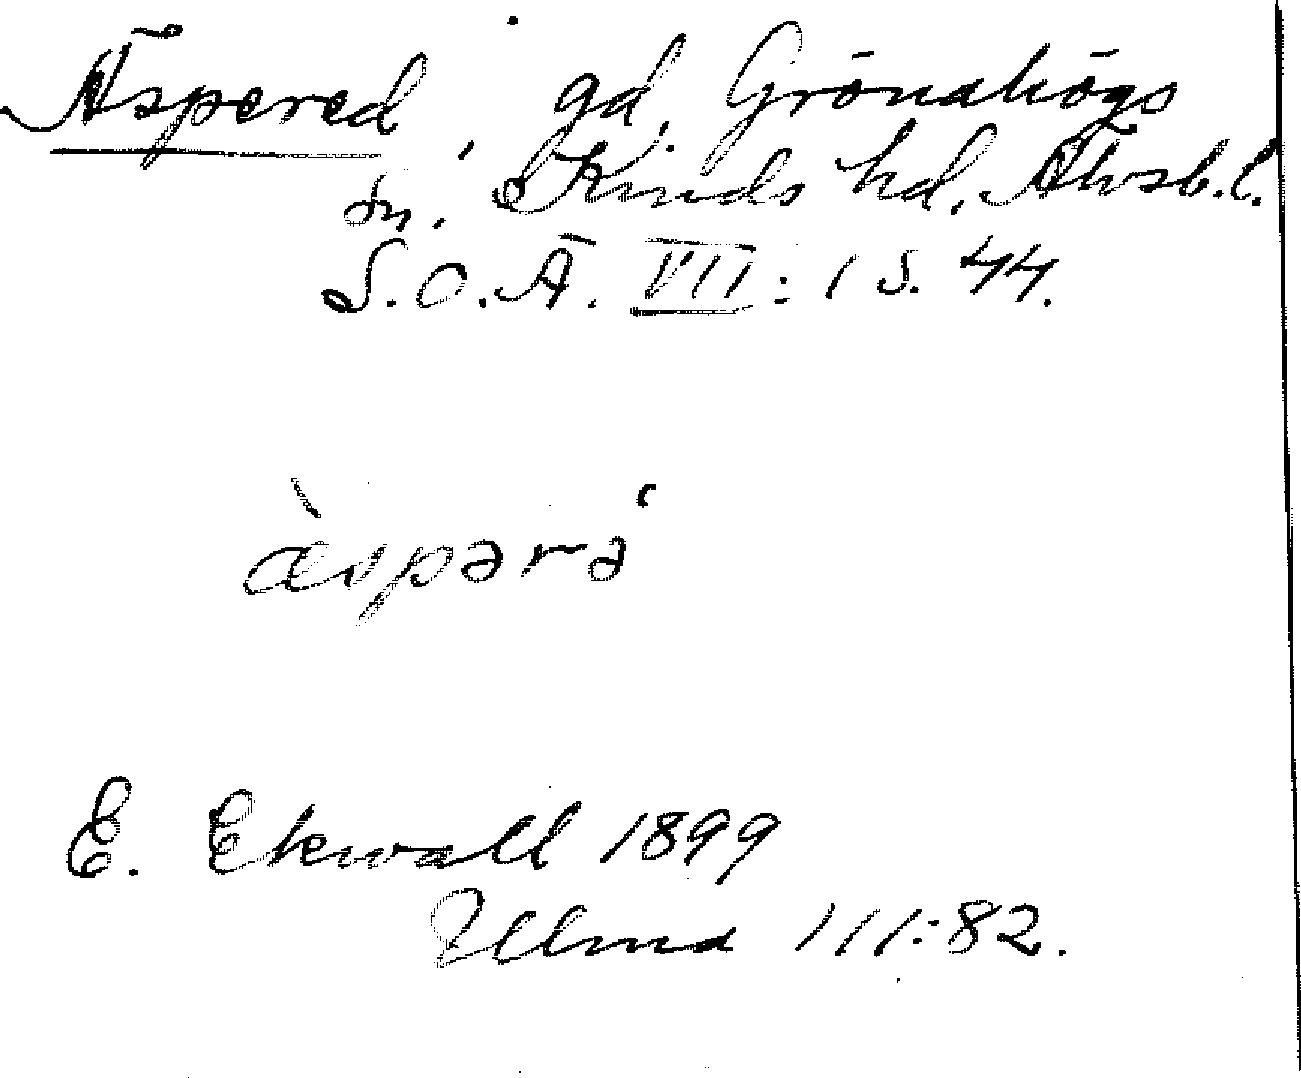 Äspered, gd, Grönahögs
sn. Kinds hd. Älvsb.l.
S.O.Ä. VII:1 S. 44.
æ̀spərə
E. Ekwall 1899
Ulma 111:82.